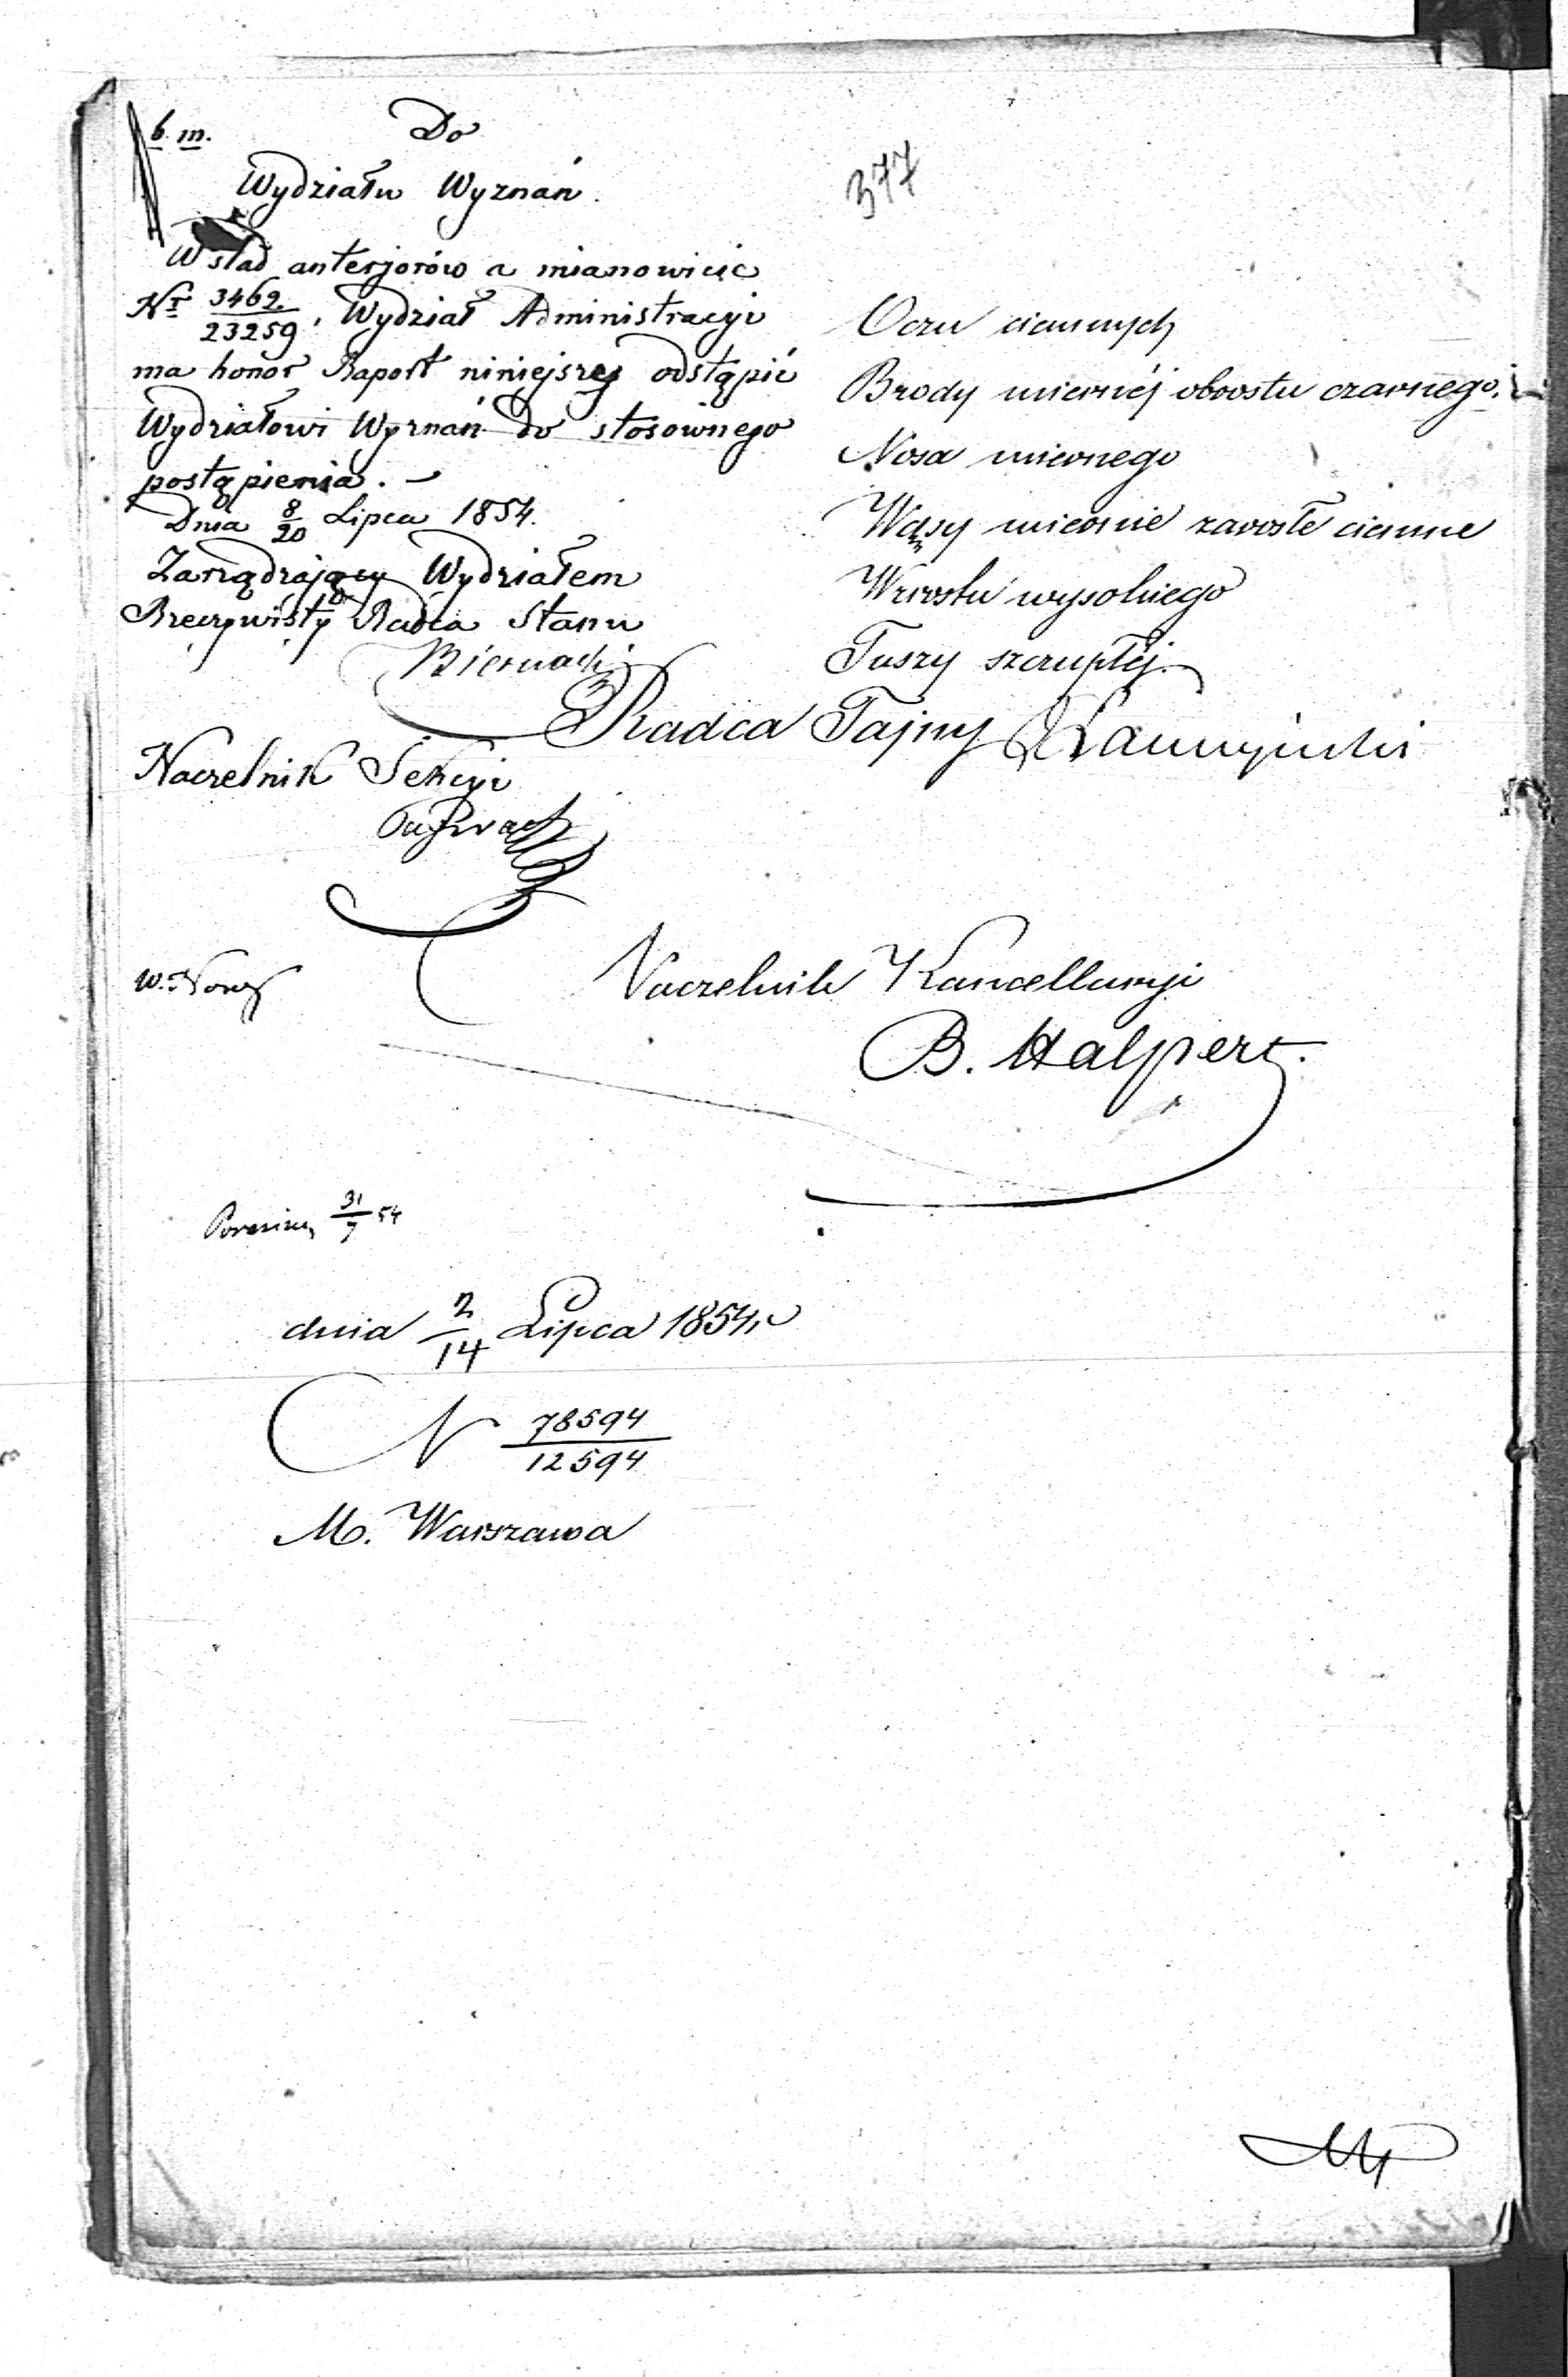 b. m.
Do
Wydziału Wyznań.
377
W ślad anterjorów a mianowicie
Nr 3462/23259, Wydział Administracyi
ma honor Raport niniejszy odstąpić
Wydziałowi Wyznań do stosownego
postąpienia. —
Dnia 8/20 Lipca 1854.
Zarządzający Wydziałem
Rzeczywisty Radca Stanu
Biernacki
Naczelnik Sekcyi
Oczu ciemnych
Brody miernéj obrostu czarnego.
Nosa miernego
Wąsy miernie zarosłe ciemne
Wzrostu wysokiego
Tuszy szczupłéj.
Radca Tajny
Naczelnik Kancellaryi
B. Halpert.
31/7 54
dnia 2/14 Lipca 1854 r
N 78594/12594
M. Warszawa